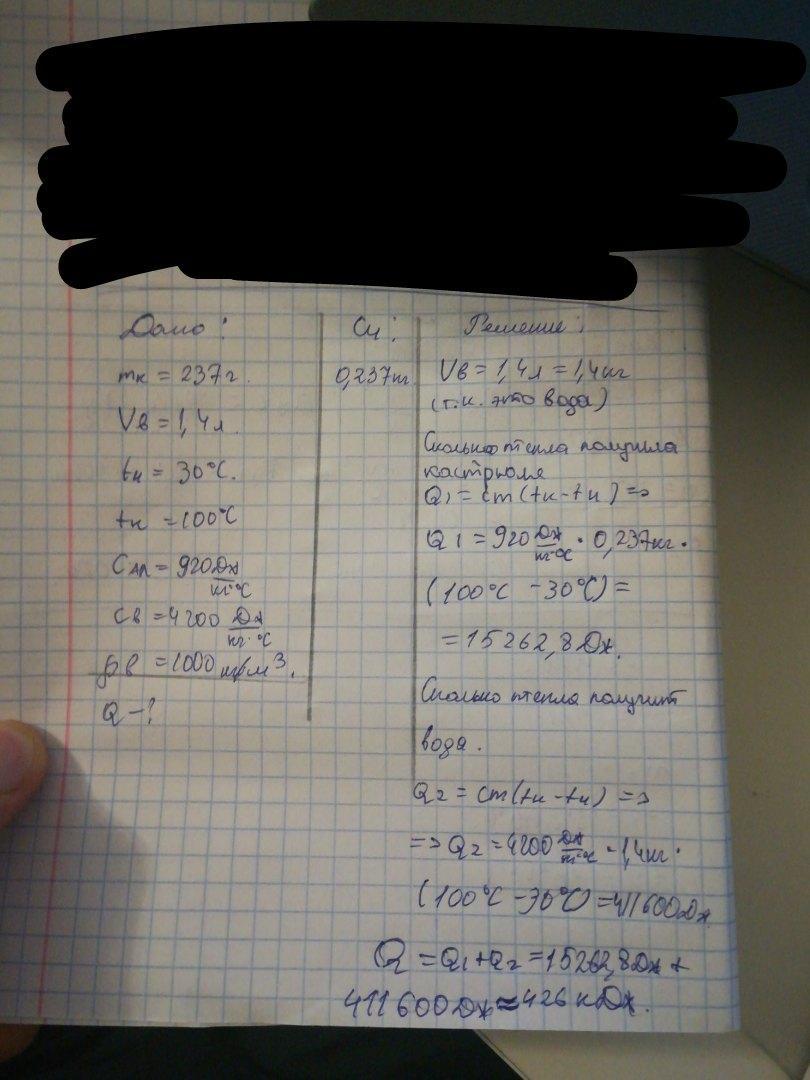 Дано:
mк = 237г.
Vв = 1,4л.
tн = 30°C.
tк = 100°C
CАл = 920 Дж/кг·°C
Cв = 4200 Дж/кг·°C
ρв = 1000 кг/м³.
Q - ?
Си:
0,237кг
Решение:
Vв = 1,4л = 1,4кг
(т.к. это вода)
Сколько тепла получила
кастрюля
Q₁ = cm(tк-tн) =>
Q₁ = 920 Дж/кг·°C · 0,237кг ·
(100°C - 30°C) =
= 15262,8 Дж.
Сколько тепла получит
вода.
Q₂ = cm(tк-tн) =>
=> Q₂ = 4200 Дж/кг·°C · 1,4кг ·
(100°C - 30°C) = 411600Дж
Q = Q₁+Q₂ = 15262,8Дж +
411600Дж ≈ 426 кДж.